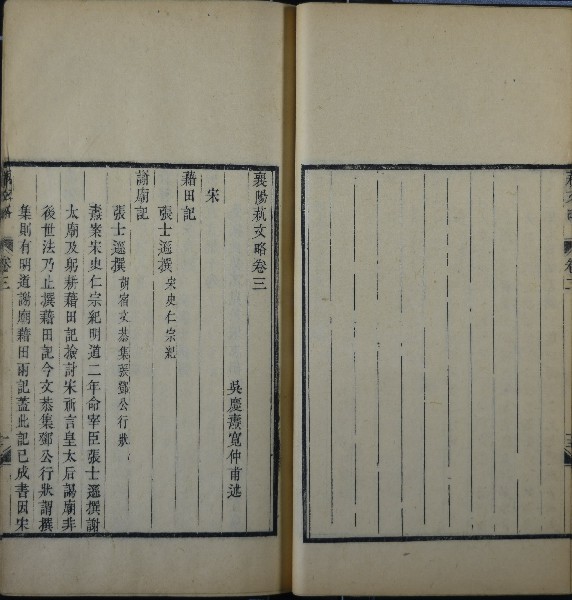 襄陽萟文略卷三
吳慶燾寬仲甫述
宋
藉田記
張士遜撰 宋史仁宗紀
謝廟記
張士遜撰 胡宿文恭集張鄧公行狀
燾案宋史仁宗紀明道二年命宰臣張士遜撰謝
太廟及躬耕藉田記檢討宋祁言皇太后謁廟非
後世法乃止撰藉田記今文恭集鄧公行狀謂撰
集則有明道謝廟藉田兩記蓋此記已成書因宋
卷三